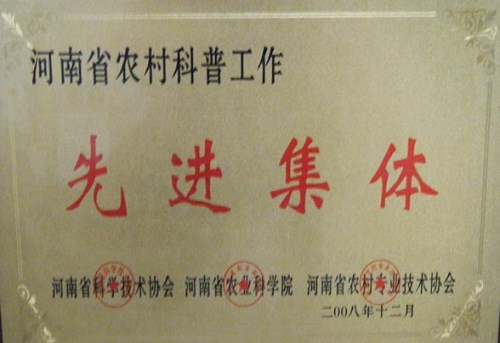 河南省农村科普工作
先进集体
河南省科学技术协会 河南省农业科学院 河南省农村专业技术协会
二00八年十二月